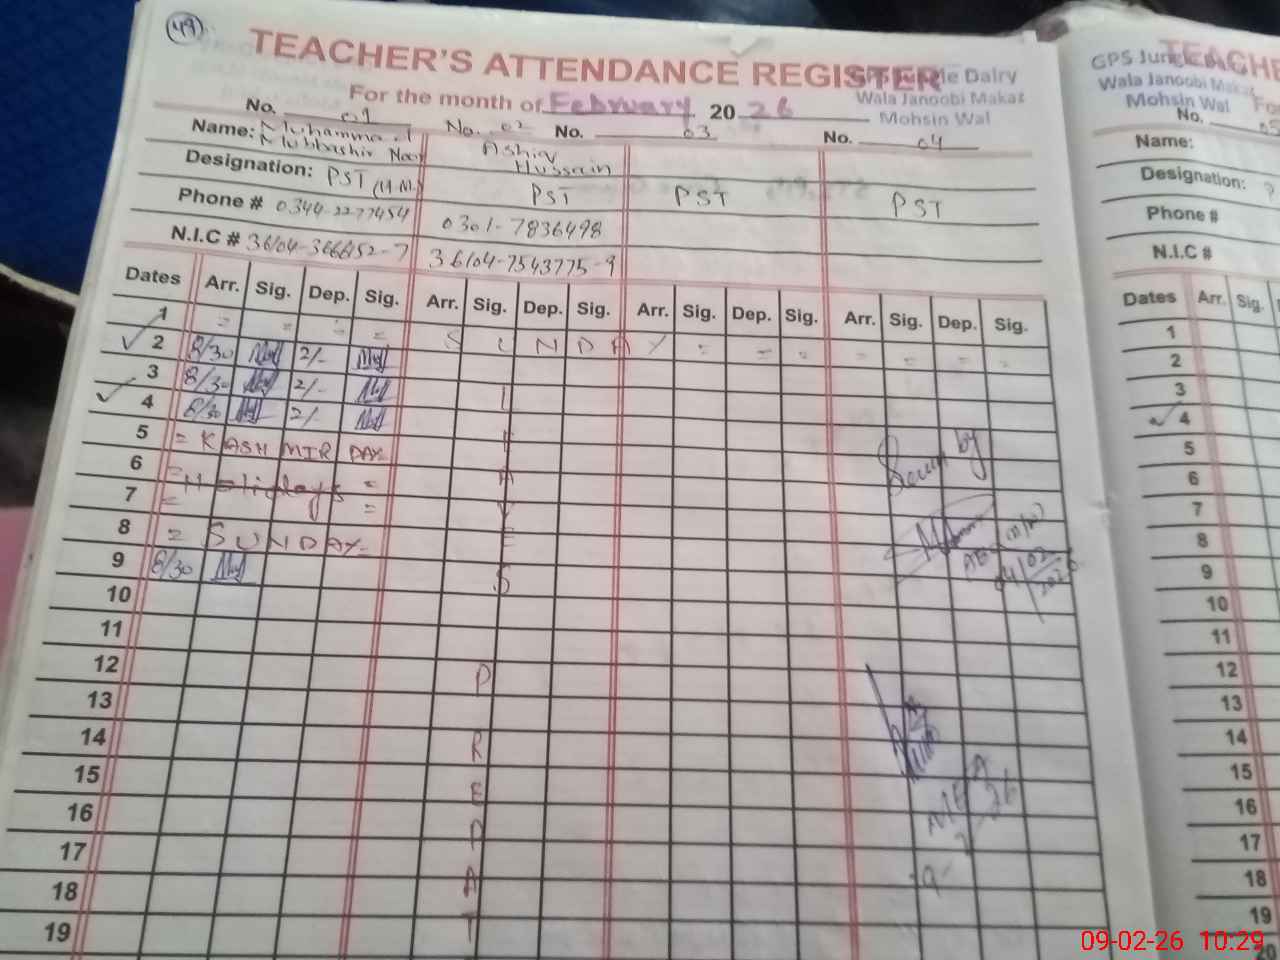 49
TEACHER'S ATTENDANCE REGISTER
Dairy
Wala Janoobi Makaz
Mohsin Wal
For the month of February 20 26
No. 01 No. 02 No. 03 No. 04
Name: Muhammad Mubbashir Ashiq Hussain
Designation: PST (H.M) PST PST PST
Phone # 0344-2277454 0301-7836498
N.I.C # 36104-7543775-9
Dates Arr. Sig. Dep. Sig. Arr. Sig. Dep. Sig. Arr. Sig. Dep. Sig. Arr. Sig. Dep. Sig.
1 = = = = S U N D A Y = = = = = = =
2 8/30 2/-
3 8/30 2/-
4 8/30 2/-
5 = KASHMIR DAY
6 = Holidays =
7 = =
8 = SUNDAY =
9 8/30
10
11
12
13
14
15
16
17
18
19
Seen by
04/02/2026
MEA
TEACHE
GPS
Wala Janoobi Makaz
Mohsin Wal
No. 05
Name:
Designation:
Phone #
N.I.C #
Dates Arr. Sig.
1
2
3
4
5
6
7
8
9
10
11
12
13
14
15
16
17
18
19
20
09-02-26 10:29